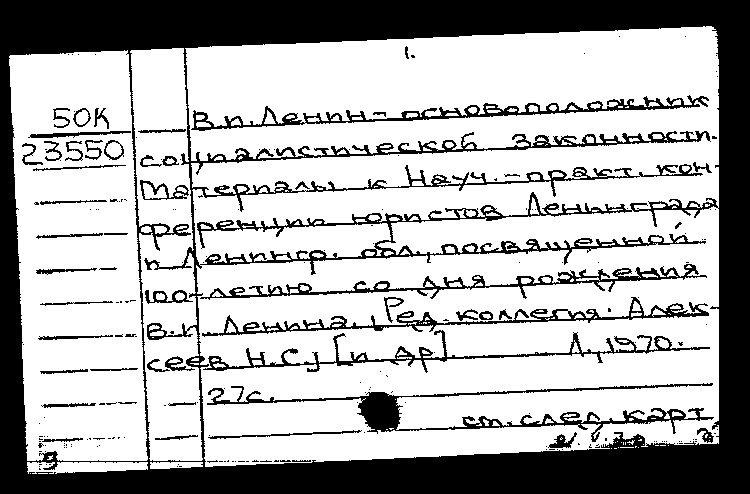 1.
50К
23550
В.И. Ленин - основоположник
социалистической законности.
Материалы к Науч.-практ. кон-
ференции юристов Ленинграда
и Ленингр. обл., посвященной
100-летию со дня рождения
В.И. Ленина. Ред. коллегия: Алек-
сеев Н.С., [и др]. Л., 1970.
27с.
см. след. карт
9